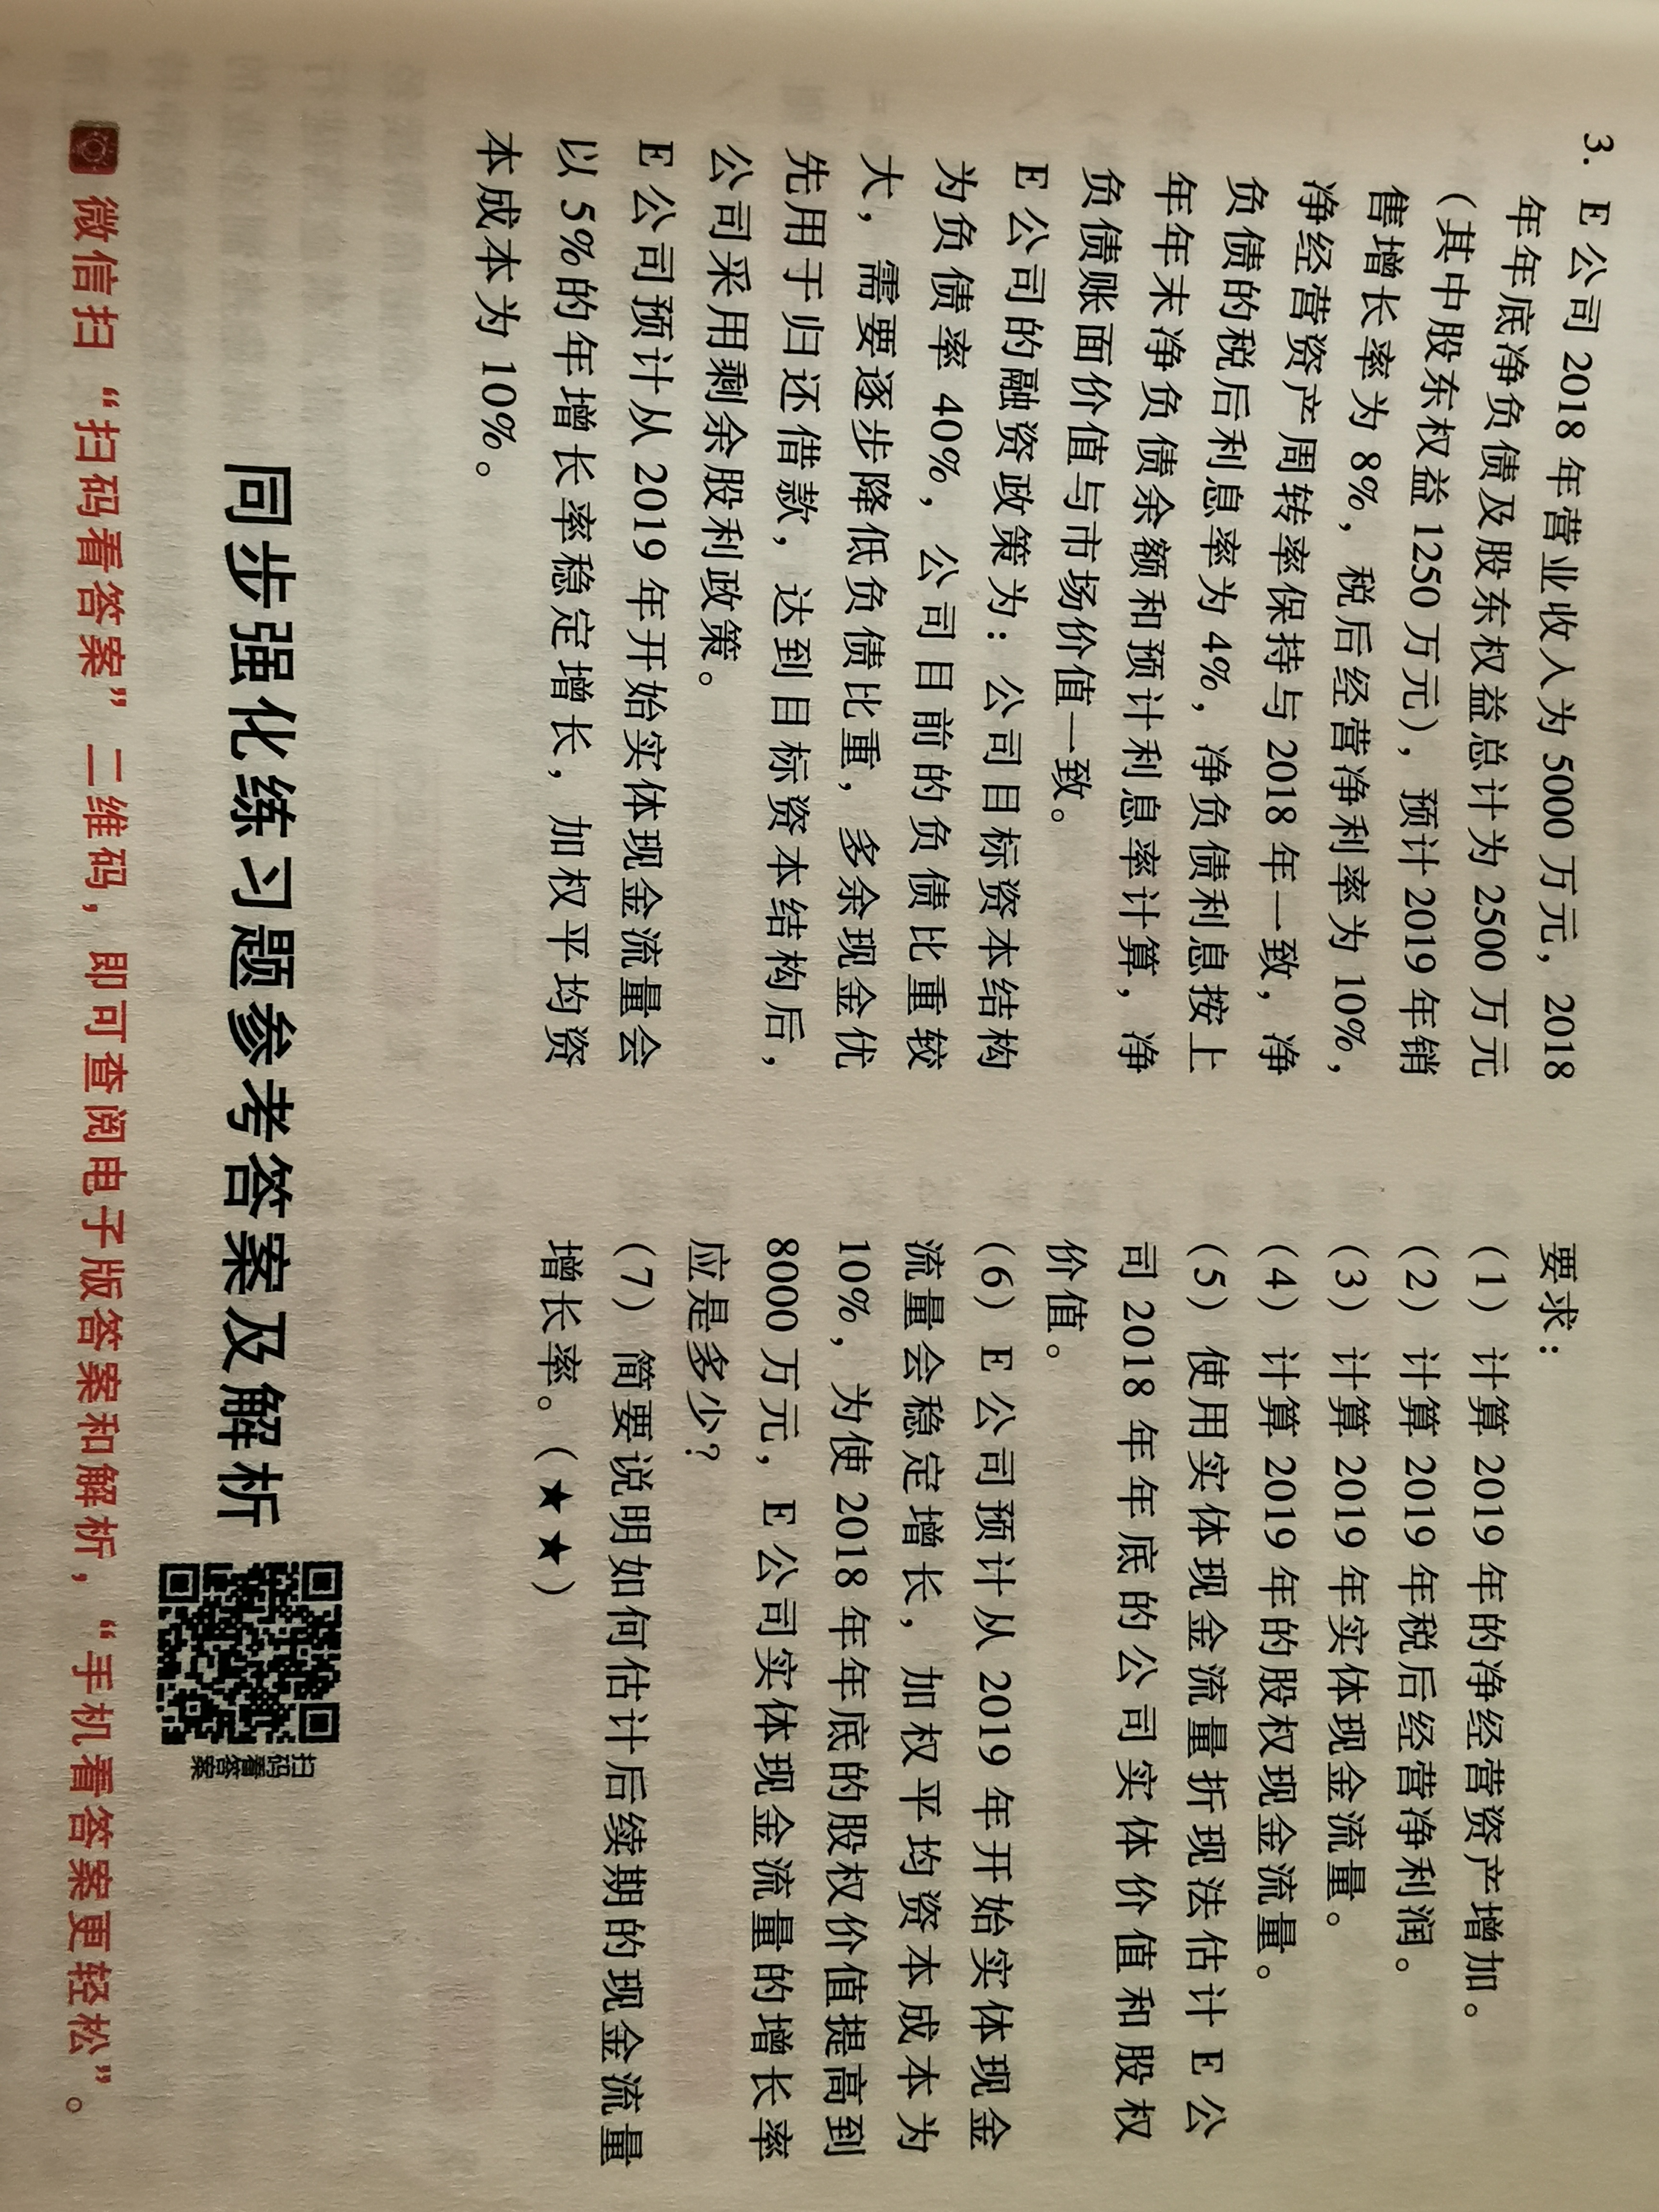 3. E公司2018年营业收入为5000万元，2018
年年底净负债及股东权益总计为2500万元
（其中股东权益1250万元），预计2019年销
售增长率为8%，税后经营净利率为10%，
净经营资产周转率保持与2018年一致，净
负债的税后利息率为4%，净负债利息按上
年年末净负债余额和预计利息率计算，净
负债账面价值与市场价值一致。
E公司的融资政策为：公司目标资本结构
为负债率40%，公司目前的负债比重较
大，需要逐步降低负债比重，多余现金优
先用于归还借款，达到目标资本结构后，
公司采用剩余股利政策。
E公司预计从2019年开始实体现金流量会
以5%的年增长率稳定增长，加权平均资
本成本为10%。
要求：
（1）计算2019年的净经营资产增加。
（2）计算2019年税后经营净利润。
（3）计算2019年实体现金流量。
（4）计算2019年的股权现金流量。
（5）使用实体现金流量折现法估计E公
司2018年年底的公司实体价值和股权
价值。
（6）E公司预计从2019年开始实体现金
流量会稳定增长，加权平均资本成本为
10%，为使2018年年底的股权价值提高到
8000万元，E公司实体现金流量的增长率
应是多少？
（7）简要说明如何估计后续期的现金流量
增长率。（★★）
同步强化练习题参考答案及解析
扫码看答案
微信扫“扫码看答案”二维码，即可查阅电子版答案和解析，“手机看答案更轻松”。